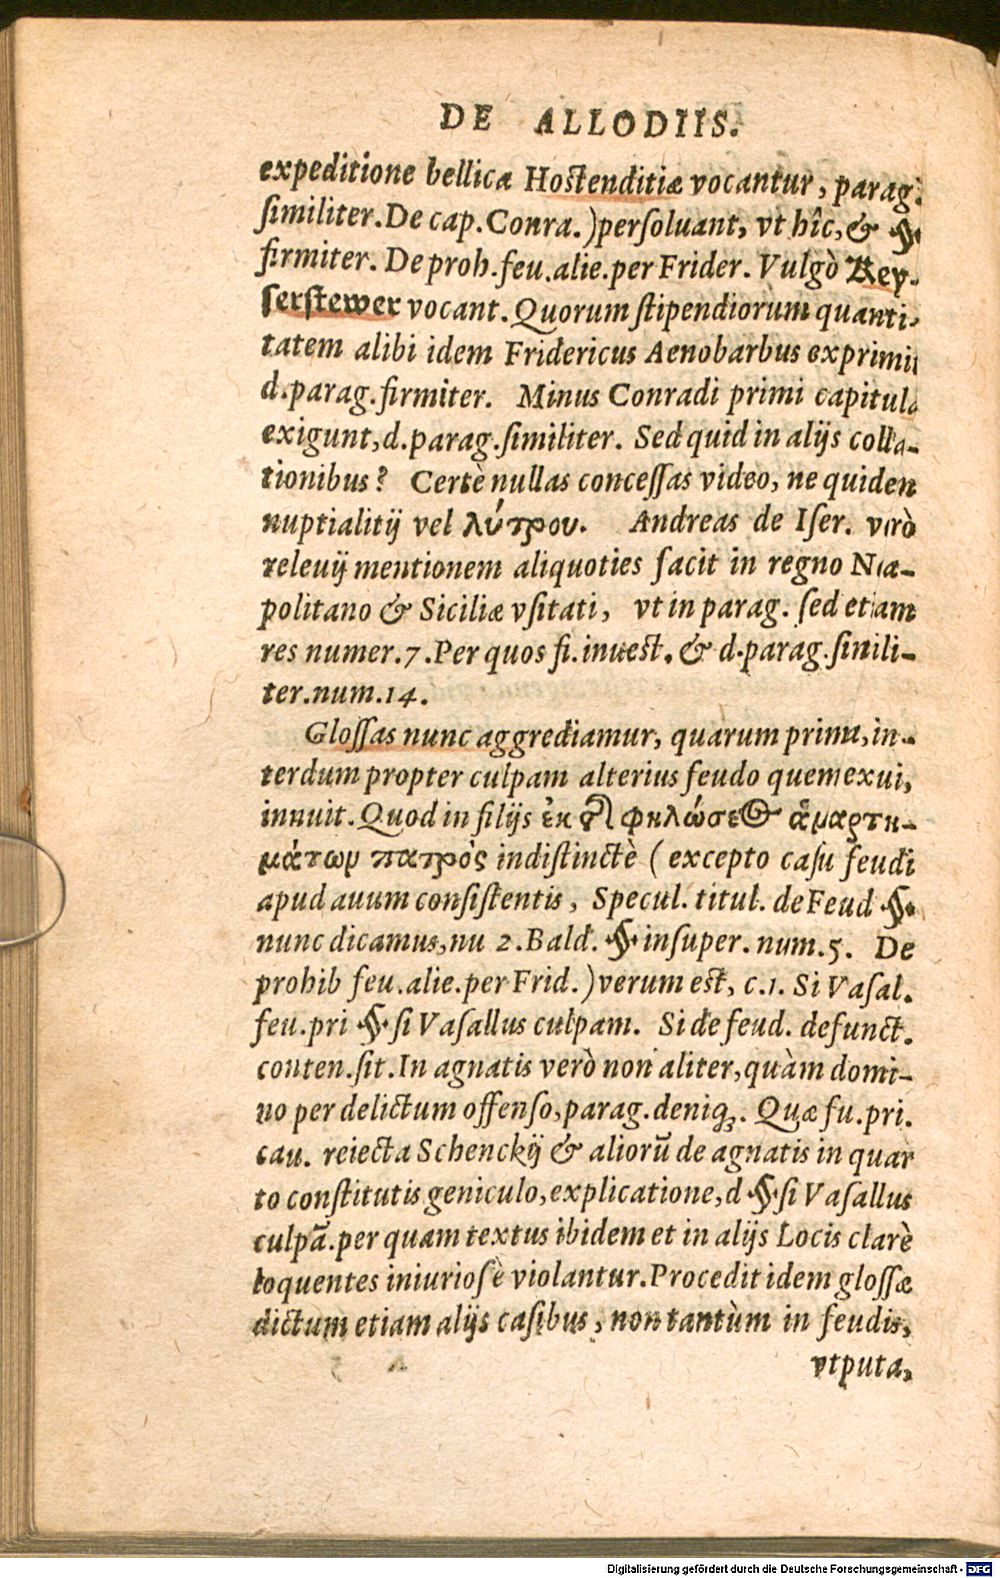 DE ALLODIIS.
expeditione bellica Hostenditiæ vocantur, parag.
similiter. De cap. Conra.) persoluant, vt hîc, & §.
firmiter. De proh. feu. alie. per Frider. Vulgò Key-
serstewer vocant. Quorum stipendiorum quanti-
tatem alibi idem Fridericus Aenobarbus exprimit
d. parag. firmiter. Minus Conradi primi capitula
exigunt, d. parag. similiter. Sed quid in alijs colla-
tionibus? Certè nullas concessas video, ne quidem
nuptialitij vel λύτρου. Andreas de Iser. verò
releuij mentionem aliquoties facit in regno Nea-
politano & Siciliæ vsitati, vt in parag. sed etiam
res numer. 7. Per quos fi. inuest. & d. parag. simili-
ter. num. 14.
Glossas nunc aggrediamur, quarum prima, in-
terdum propter culpam alterius feudo quem exui,
innuit. Quod in filijs ἐκ φηλώσεως ἁμαρτη-
μάτων πατρὸς indistinctè (excepto casu feudi
apud auum consistentis, Specul. titul. de Feud §.
nunc dicamus, nu 2. Bald. §. insuper. num. 5. De
prohib feu. alie. per Frid.) verum est, c. 1. Si Vasal.
feu. pri §. si Vasallus culpam. Si de feud. defunct.
conten. sit. In agnatis verò non aliter, quàm domi-
no per delictum offenso, parag. deniq́;. Quæ fu. pri.
cau. reiecta Schenckij & aliorũ de agnatis in quar
to constitutis geniculo, explicatione, d §. si Vasallus
culpã. per quam textus ibidem et in alijs Locis clarè
loquentes iniuriosè violantur. Procedit idem glossæ
dictum etiam alijs casibus, non tantùm in feudis,
vtputa,
Digitalisierung gefördert durch die Deutsche Forschungsgemeinschaft - DFG